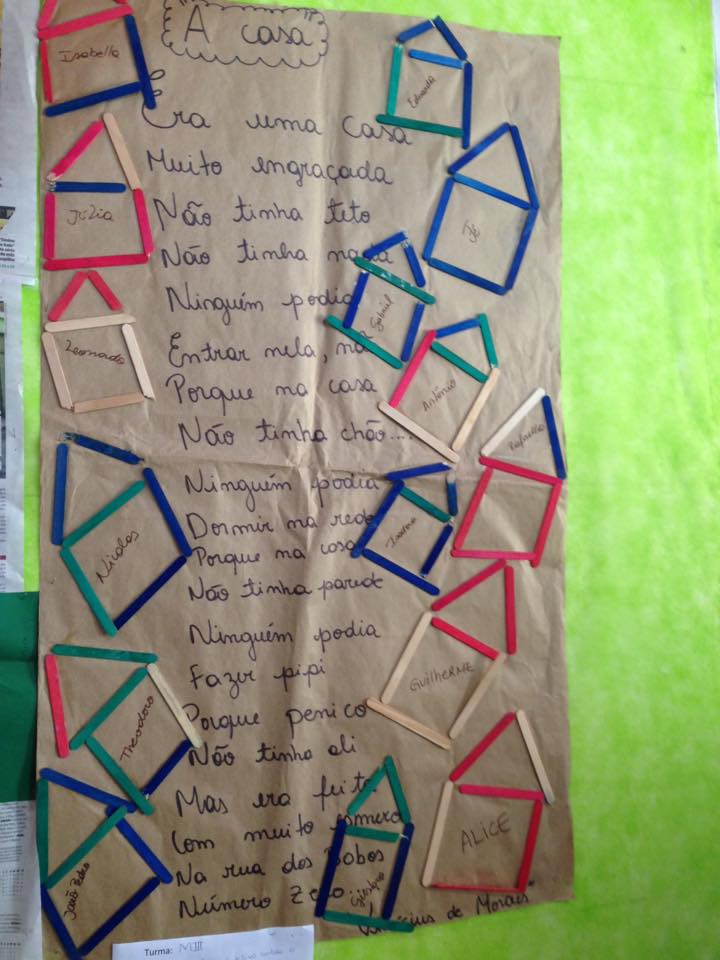 A casa
Era uma casa
Muito engraçada
Não tinha teto
Não tinha nada
Ninguém podia
Entrar nela, na
Porque na casa
Não tinha chão...
Ninguém podia
Dormir na rede
Porque na casa
Não tinha parede
Ninguém podia
Fazer pipi
Porque penico
Não tinha ali
Mas era feita
Com muito esmero
Na rua dos Bobos
Número Zero...
Vinícius de Moraes
Isabella
Júlia
Leonardo
Nicolas
Theodoro
João Pedro
Eduarda
Gabriel
Antônio
Rafaella
Isadora
GUILHERME
ALICE
Turma: